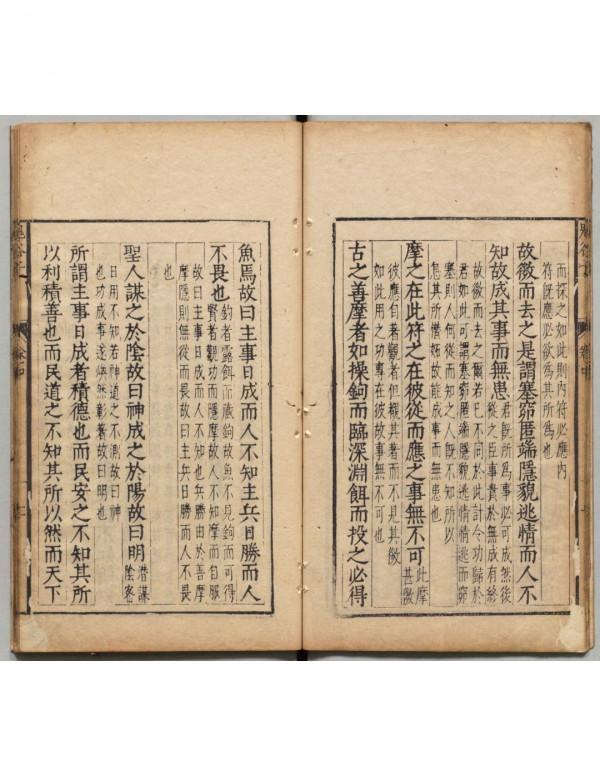 而探之如此則內符必應內
符既應必欲為其所為也
故微而去之是謂塞窌匿端隱貌逃情而人不
知故成其事而無患
君既所為事必可成然後
從之臣事貴於無成有終
故微而去之爾若已不同於此計令功歸於
君如此可謂塞窌匿端隱貌逃情情逃而窌
塞則人何從而知之人既不知所以
怠其所僭妬故能成事而無患也
摩之在此符之在彼從而應之事無不可
此摩
甚微
彼應自著觀者但覩其著而不見其微
如此用之功專在彼故事無不可也
古之善摩者如操鉤而臨深淵餌而投之必得
魚焉故曰主事日成而人不知主兵日勝而人
不畏也
釣者露餌而藏鉤故魚不見鉤而可得
賢者觀功而隱摩故人不知摩而自服
故曰主事日成而人不知也兵勝由於善摩
摩隱則無從而畏故曰主兵日勝而人不畏
聖人謀之於陰故曰神成之於陽故曰明
潛謀
陰密
日用不知若神道之不測故曰神
也功成事遂煥然彰著故曰明也
所謂主事日成者積德也而民安之不知其所
以利積善也而民道之不知其所以然而天下
卷中